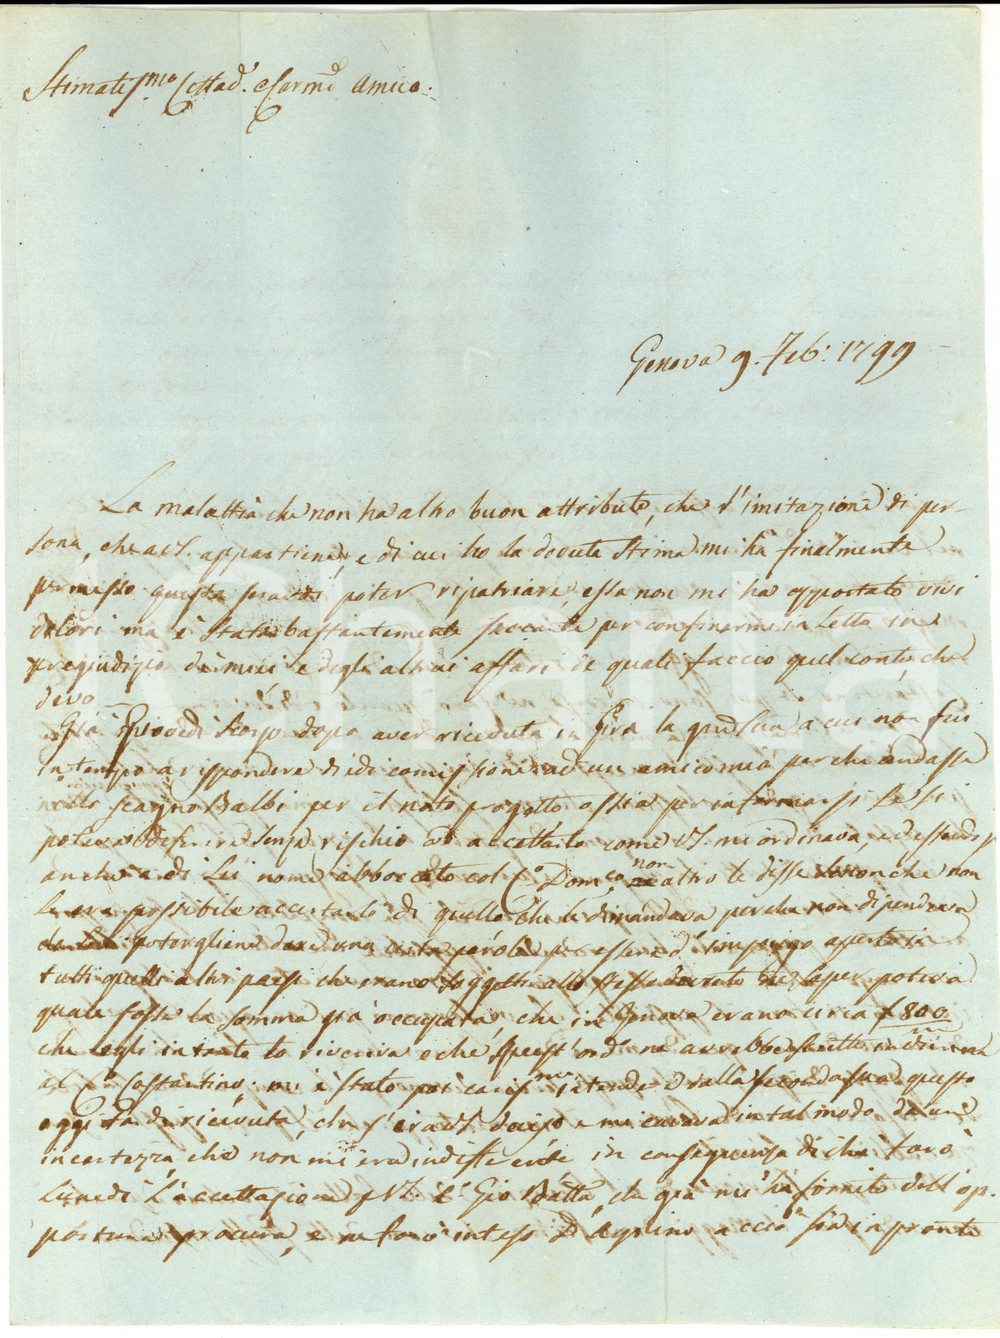 Stimatis.mo Cittad.o e Carmo Amico.
Genova 9. Feb: 1799
La malattia che non ha altro buon attributo, che l'imitazione di per-
sona, che a V.S. appartiene, e di cui ho la dovuta stima mi ha finalmente
permesso questa poter ripatriare, essa non mi ha apportato vivi
dolori ma è stata bastantemente per confinarmi in Letto in
pregiudizio de miei e degli altrui affari de quali faccio quel conto, che
devo
Già Giovedi scorso dopo aver ricevuta in la sua a cui non fui
in tempo a rispondere diedi comissione ad un amico mio perche andasse
nello scagno Balbi per il noto progetto ossia per informarsi se si
poteva senza rischio accettarlo come V.S. mi ordinava, ed essendosi
anche a di Lei nome abboccato col C.o Dom.co non altro le disse che non
le era possibile accertarlo di quello che le dimandava perche non dipendeva
potergliene dare una certa parola per essere d' impiego aperto in
tutti quelli altri paesi che erano soggetti allo stesso che saper poteva
quale fosse la somma già occupata, che in Genova erano circa £800
che egli intanto lo riveriva e che ne avrebbe scritto
al C.o Costantino; mi è stato poi cariss.mo intendere dalla seconda sua questo
oggi da me ricevuta, che s'era V.S. deciso e mi cavava in tal modo da una
incertezza, che non mi era indifferente in conseguenza di che farò
Lunedi l'accettazione V.S. e Gio Batta, che già mi ha fornito dell'op-
portuna procura, e ne farò inteso D'Aquino acciò sia in pronto